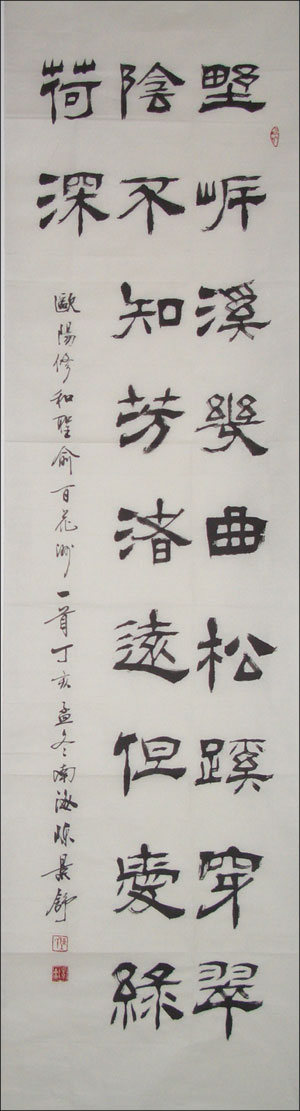 野岸溪幾曲松蹊穿翠
陰不知芳渚遠但愛綠
荷深
歐陽修和聖俞百花洲一首丁亥孟冬南海陳景舒